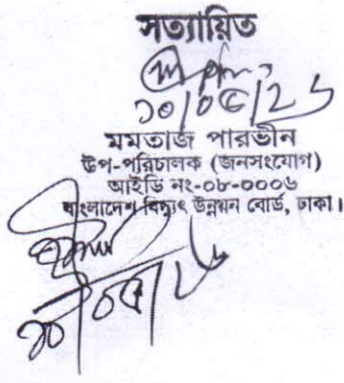 সত্যায়িত
১০/০৫/২৬
মমতাজ পারভীন
উপ-পরিচালক (জনসংযোগ)
আইডি নং-০৮-০০০৬
বাংলাদেশ বিদ্যুৎ উন্নয়ন বোর্ড, ঢাকা।
১০/০৫/২৬